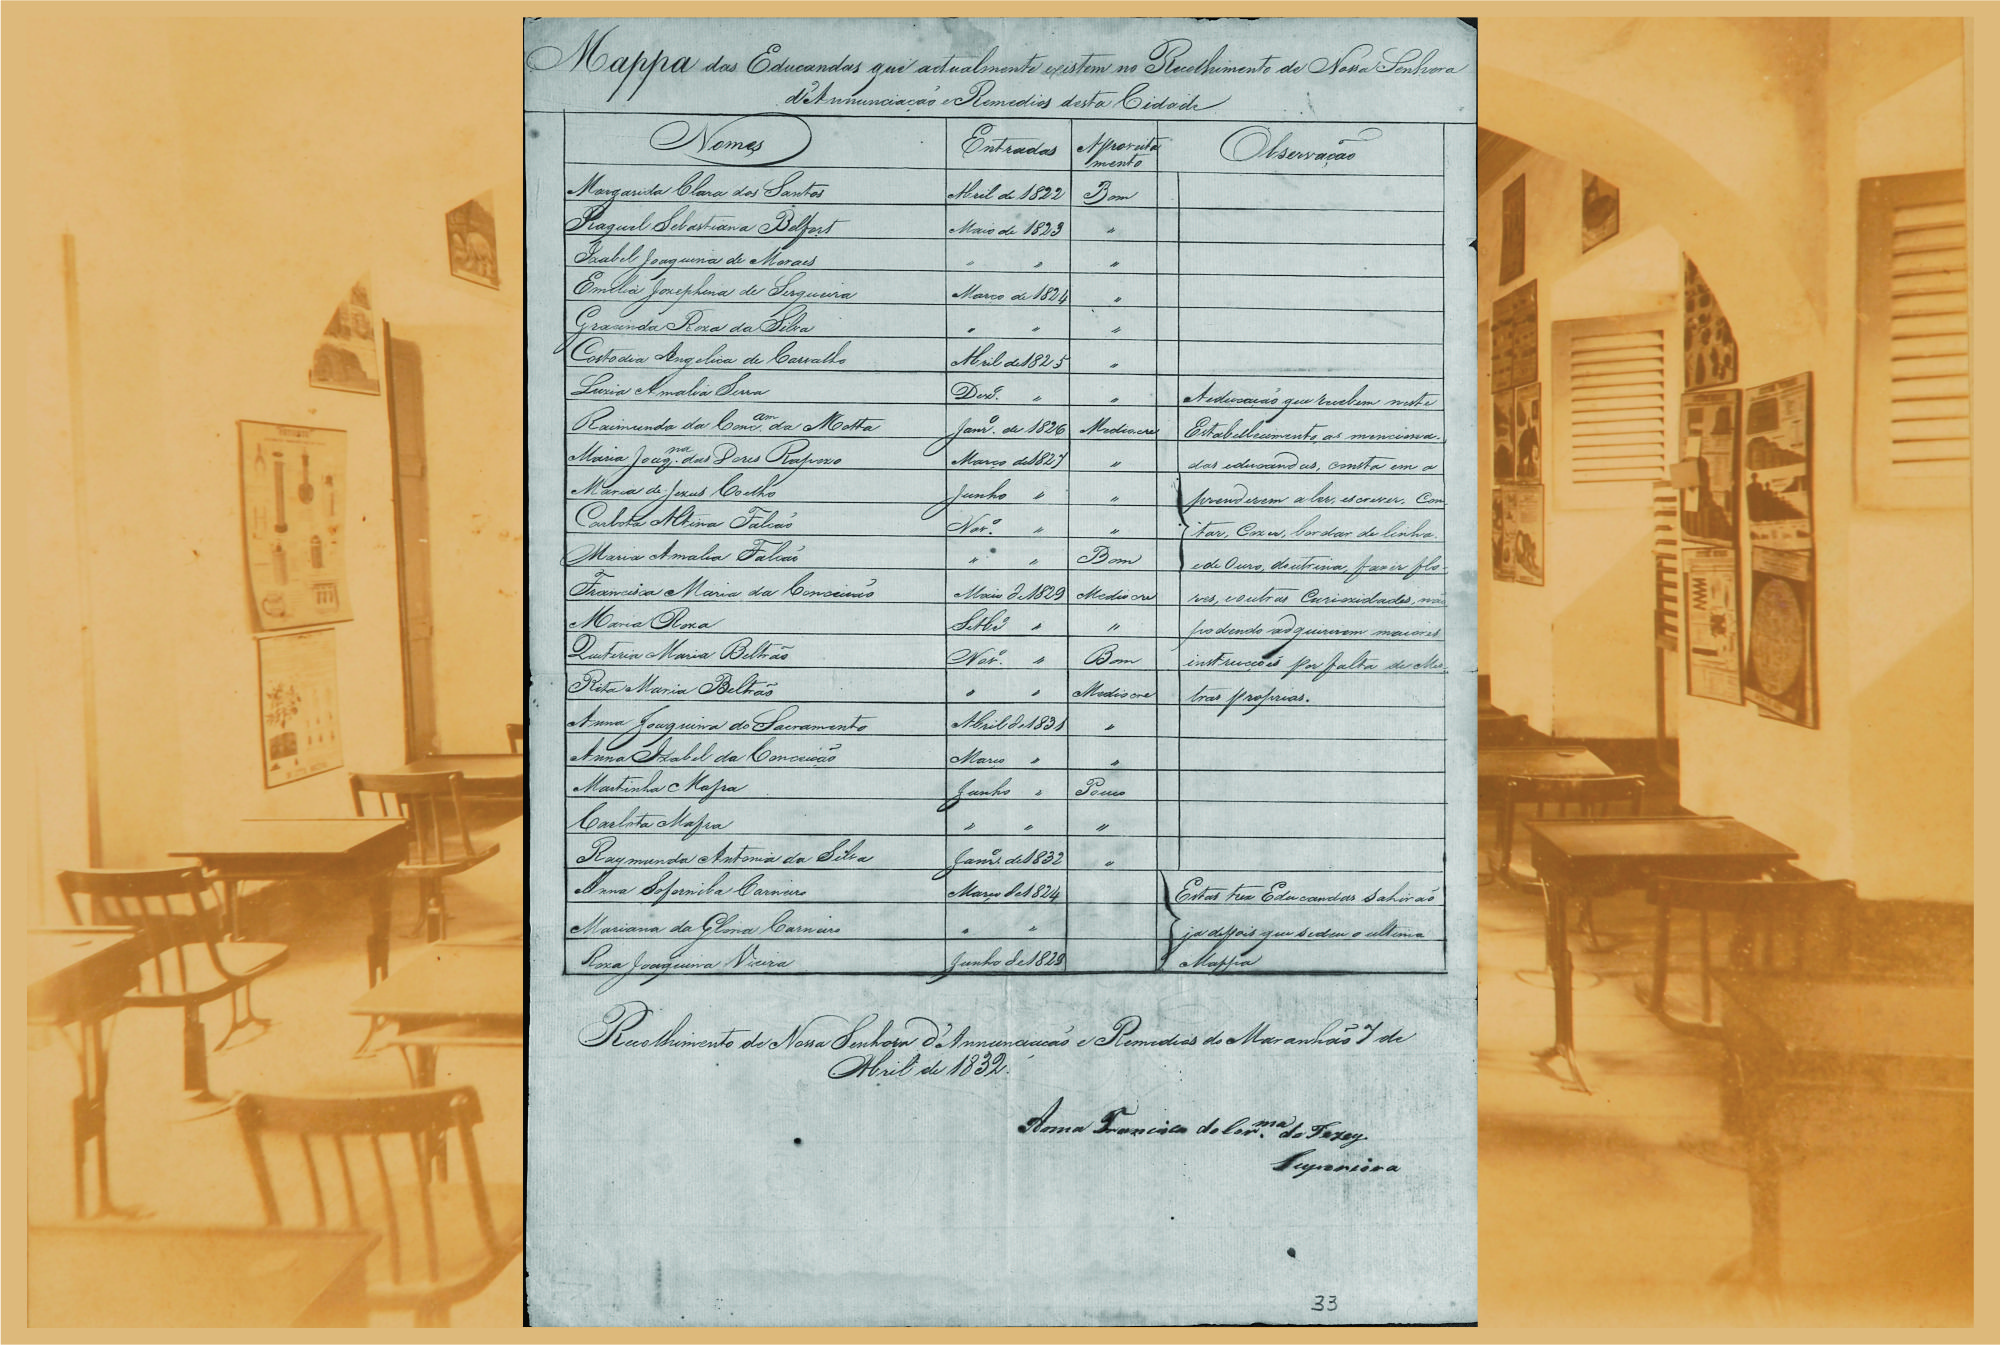 Mappa das Educandas que actualmente existem no Recolhimento de Nossa Senhora
d'Annunciação e Remedios desta Cidade
Nomes Entradas Aproveita
mento Observação
Margarida Clara dos Santos Abril de 1822 Bom
Raquel Sebastiana Belfort Maio de 1823 "
Izabel Joaquina de Moraes " " "
Emilia Jozephina de Serqueira Março de 1824 "
Gracinda Roza da Silva " " "
Costodia Angelica de Carvalho Abril de 1825 "
Luzia Amalia Serra Dezo. " " A educação que recebem neste
Raimunda da Concam. da Motta Janro. de 1826 Mediocre Estabellecimento as menciona-
Maria Joaqna. das Dores Rapozo Março de 1827 " das educandas, consta em a
Maria de Jezus Coelho Junho " " prenderem a ler, escrever, Con
Carlota Altina Falcão Novo. " " tar, Cozer, bordar de linha
Maria Amalia Falcão " " Bom e de Ouro, doutrina, fazer flo-
Francisca Maria da Conceição Maio de 1829 Mediocre res, e outras Curiozidades, não
Maria Roza Setbro " " podendo adquirirem maiores
Quiteria Maria Beltrão Novo. " Bom instrucções por falta de Mes-
Rita Maria Beltrão " " Mediocre tras proprias.
Anna Joaquina do Sacramento Abril de 1831 "
Anna Izabel da Conceição Março " "
Martinha Mafra Junho " Pouco
Carlota Mafra " " "
Raymunda Antonia da Silva Janro. de 1832 "
Anna Carneiro Março de 1824 Estas trez Educandas sahirão
Mariana da Gloria Carneiro " " ja depois que se deu o ultimo
Roza Joaquina Vieira Junho de 1829 Mappa
Recolhimento de Nossa Senhora d'Annunciação e Remedios do Maranhão 7 de
Abril de 1832.
Francisca do
Superiora
33